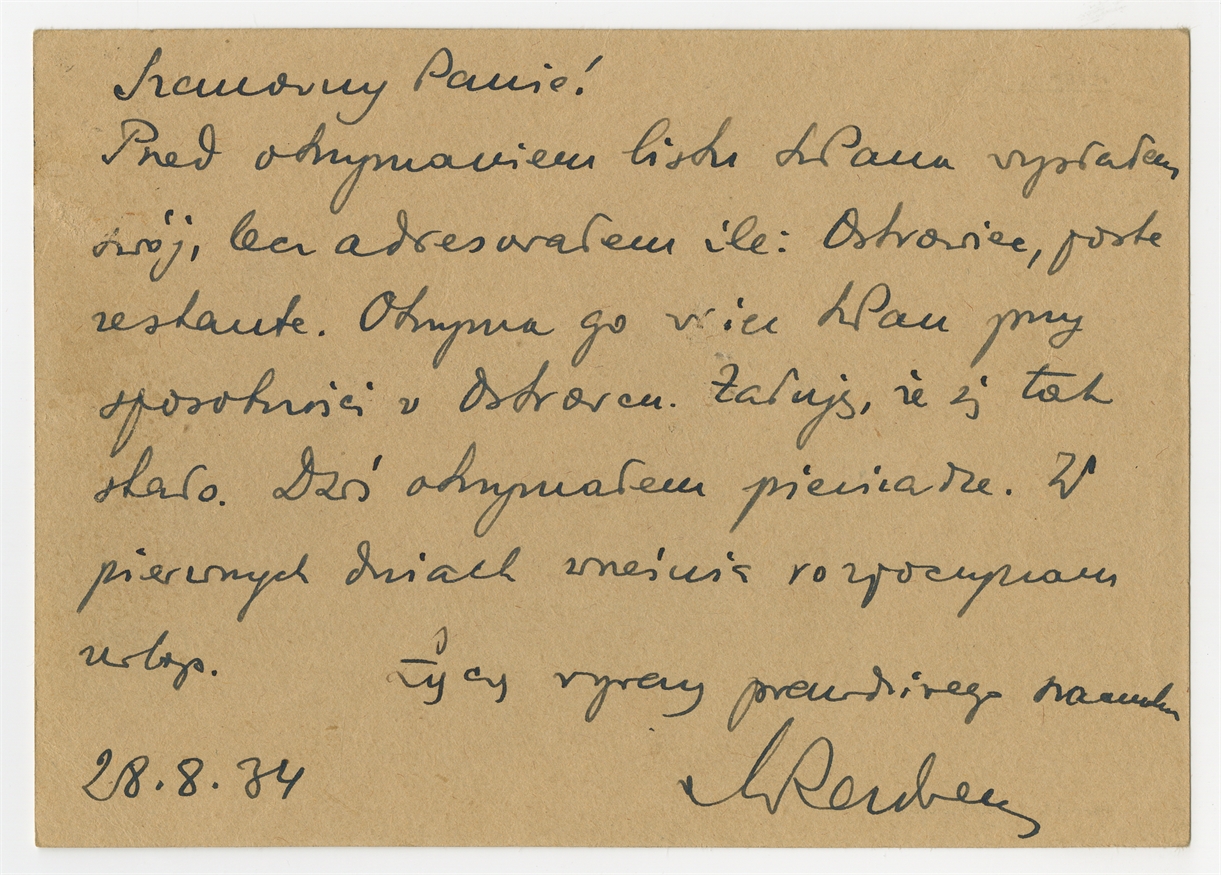 Szanowny Panie!
Przed otrzymaniem listu WPana wysłałem
swój, lecz adresowałem źle: Ostrowiec, poste
restante. Otrzyma go więc WPan przy
sposobności w Ostrowcu. Żałuję, że się tak
stało. Dziś otrzymałem pieniądze. W
pierwszych dniach września rozpoczynam
urlop.
Łączę wyrazy prawdziwego szacunku
28.8.34